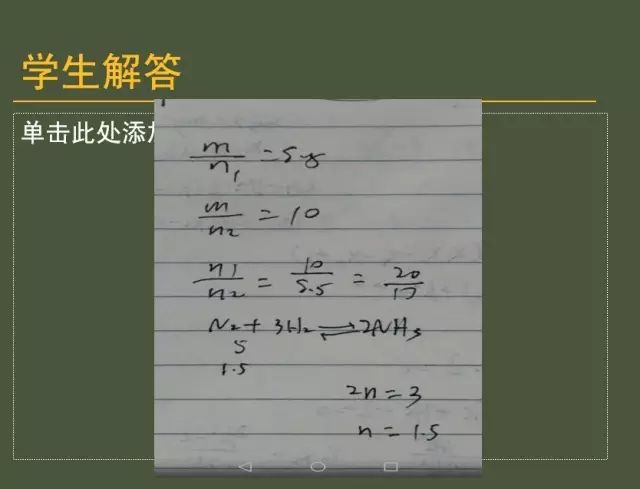 学生解答
单击此处添加
m/n₁ = 5
m/n₂ = 10
n₁/n₂ = 10/5.5 = 20/
N₂ + 3H₂ ⇌ 2NH₃
5
1.5
2n = 3
n = 1.5